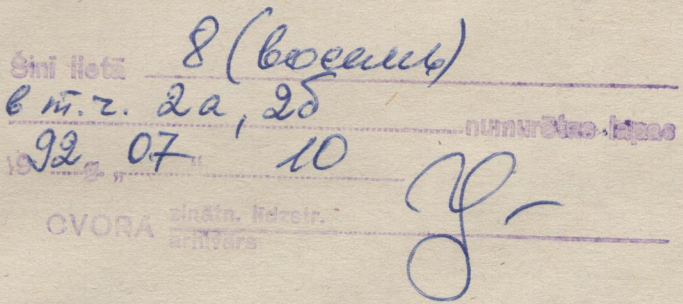 Šinī lietā 8 (восемь)
в т.ч. 2а, 2б numurētas lapas
1992 g. „07" 10
CVORA zinātn. līdzstr.
arhivārs